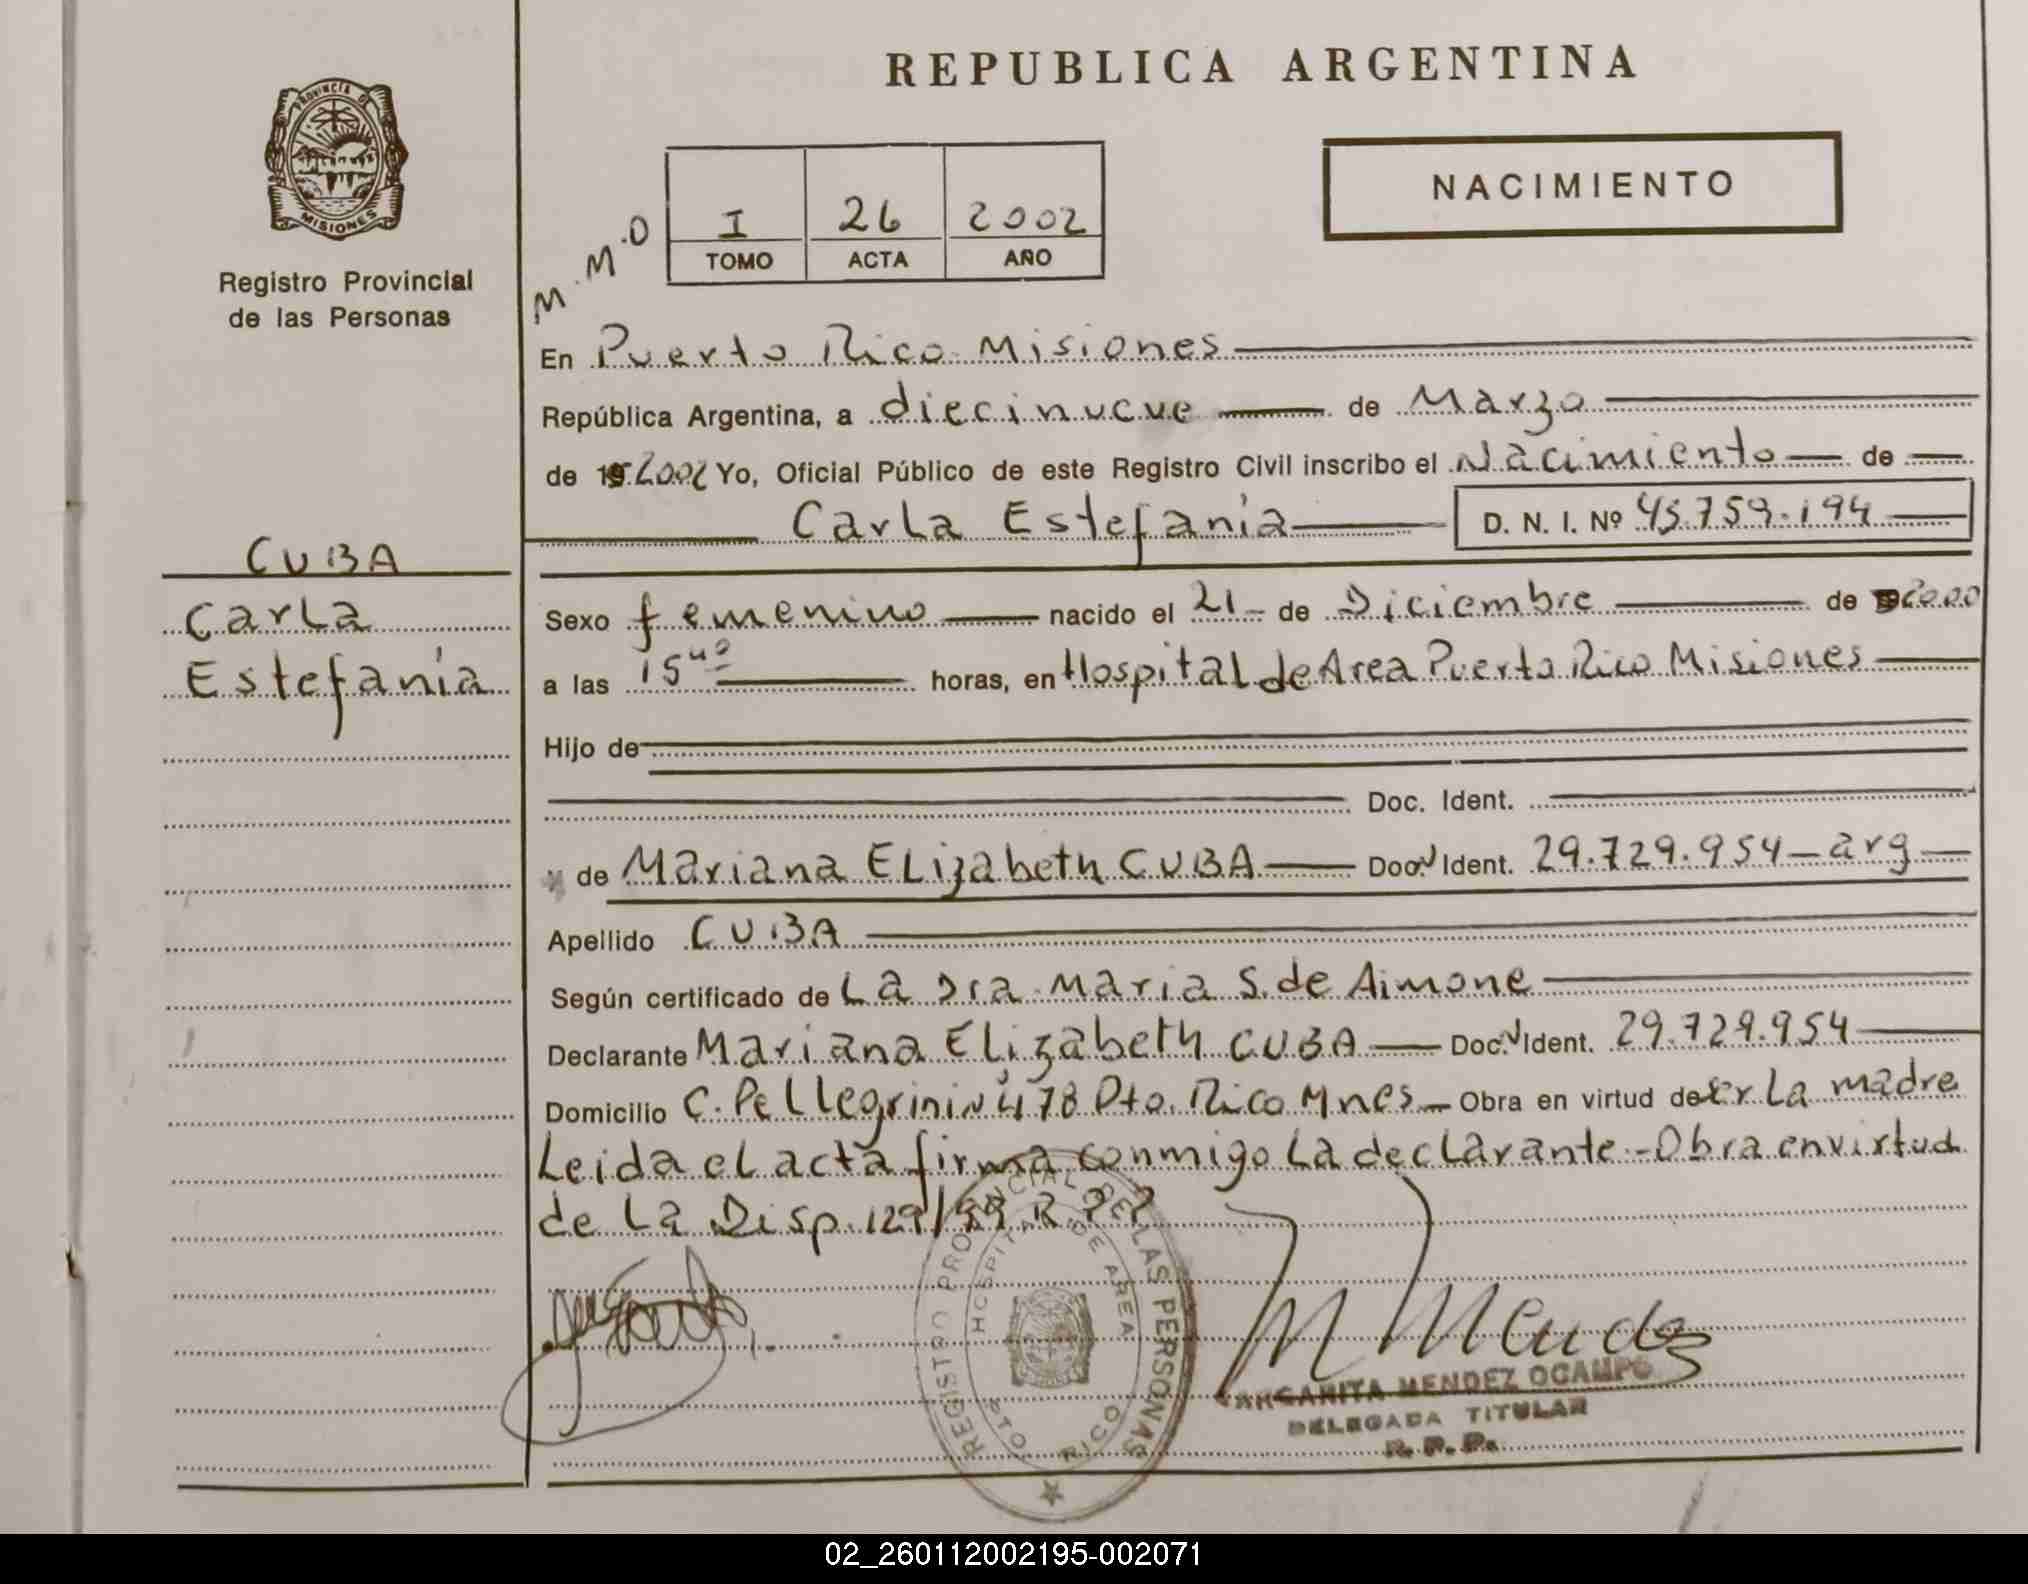 REPUBLICA ARGENTINA
PROVINCIA DE
MISIONES
Registro Provincial
de las Personas
M.M.O
I 26 2002
TOMO ACTA AÑO
NACIMIENTO
En Puerto Rico Misiones
República Argentina, a diecinueve de Marzo
de 19 2002 Yo, Oficial Público de este Registro Civil inscribo el Nacimiento de
Carla Estefanía D. N. I. Nº 43.759.194
CUBA
Carla
Estefanía
Sexo femenino nacido el 21 de Diciembre de 2000
a las 15 40 horas, en Hospital de Area Puerto Rico Misiones
Hijo de
Doc. Ident.
y de Mariana ELizabeth CUBA Doc. Ident. 29.729.954 - arg
Apellido CUBA
Según certificado de La Dra Maria S. de Aimone
Declarante Mariana Elizabeth CUBA Doc. Ident. 29.729.954
Domicilio C. Pellegrini N 478 Pto. Rico Mnes Obra en virtud de ser La madre
Leida el acta firma conmigo La declarante - Obra en virtud
de La Disp. 129/99 R P P
REGISTRO PROVINCIAL DE LAS PERSONAS
HOSPITAL DE AREA
PTO RICO
M Mendez
MARGARITA MENDEZ OCAMPO
DELEGADA TITULAR
R. P. P.
02_260112002195-002071